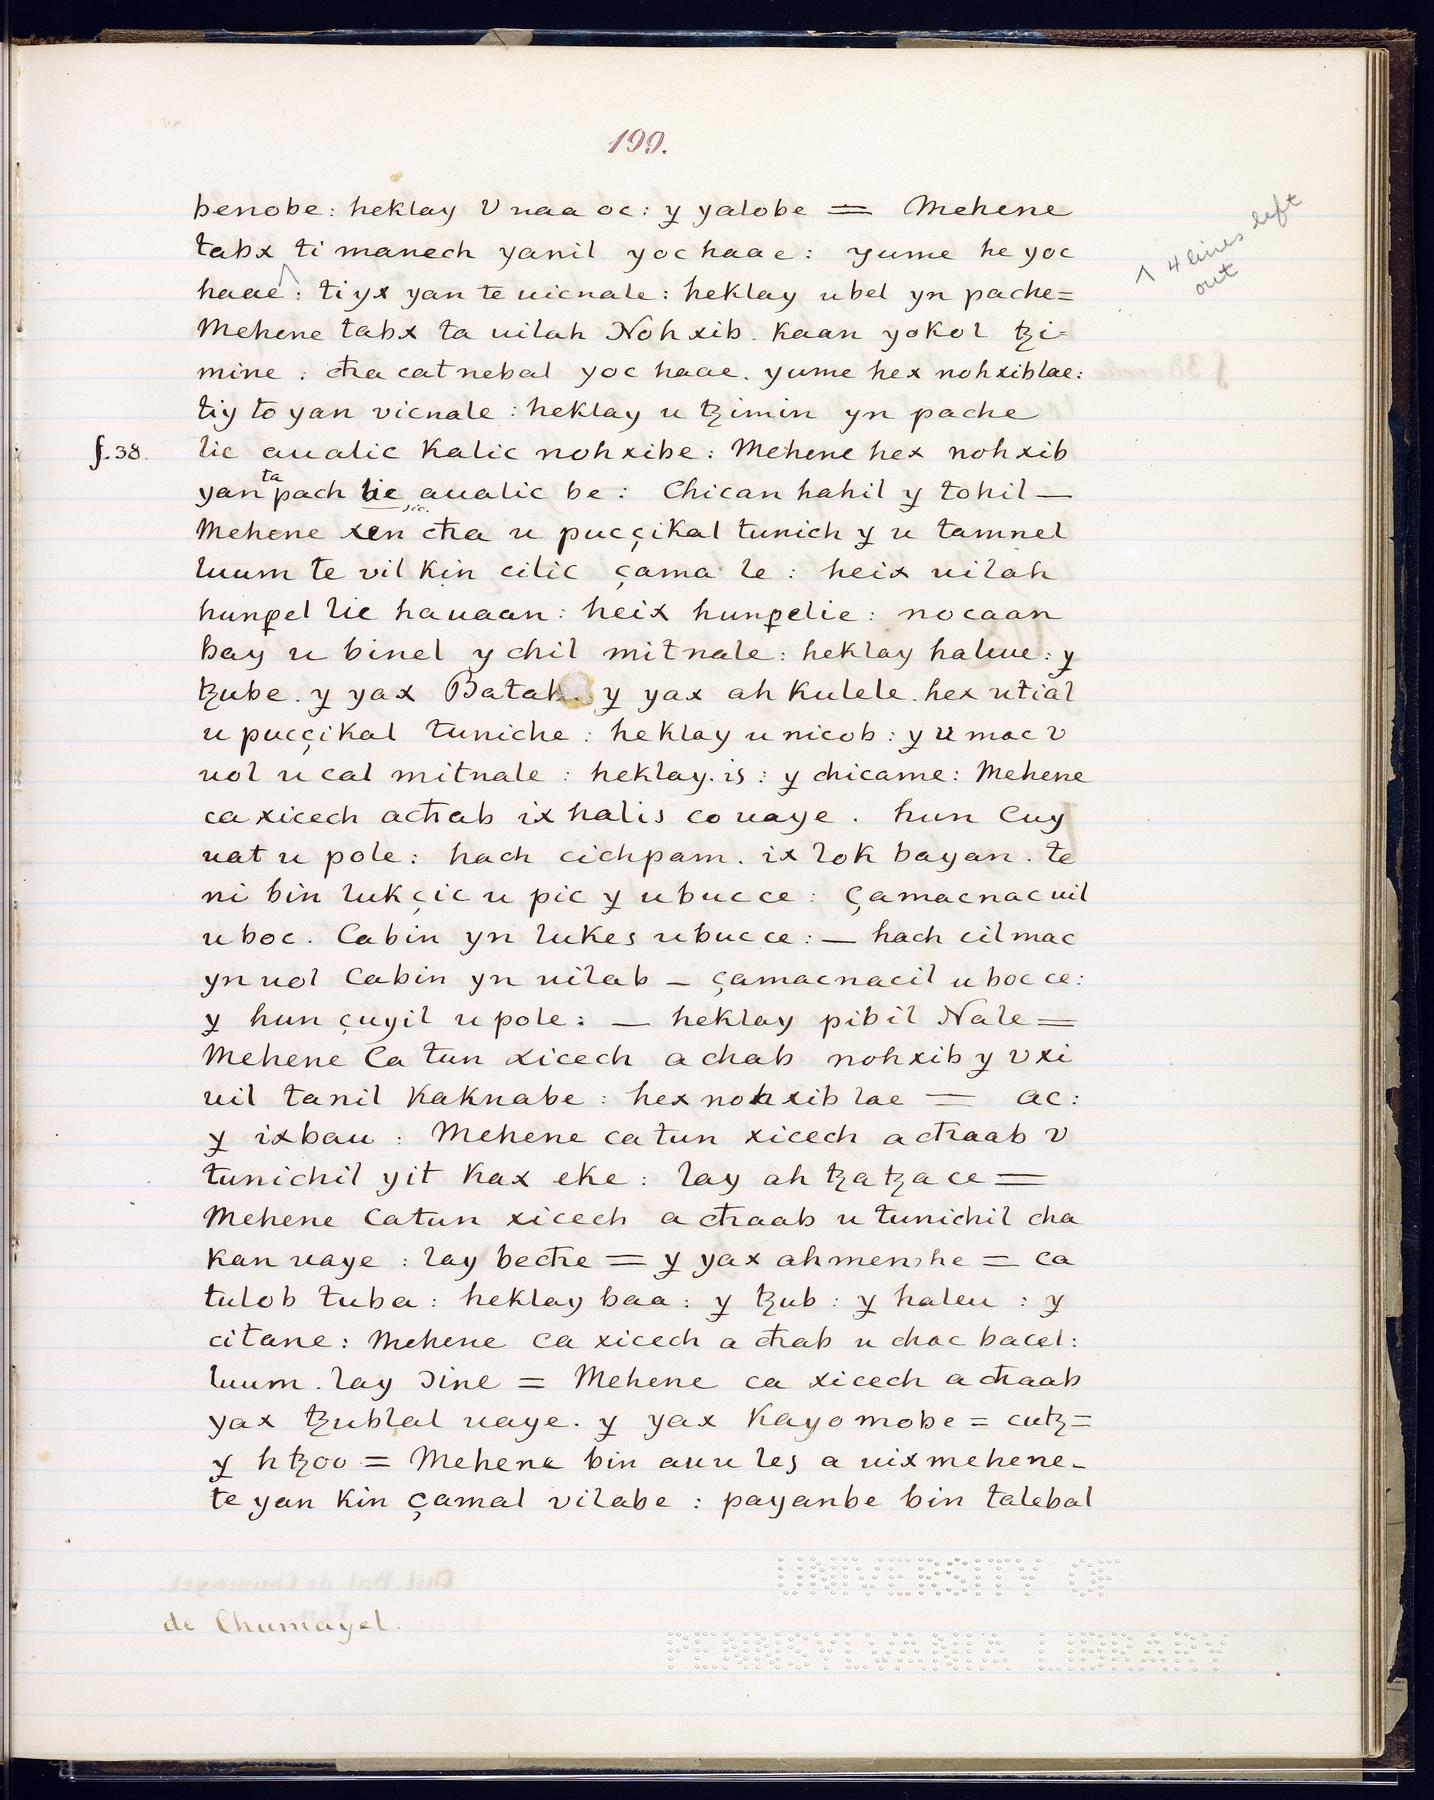 199.
benobe: heklay V naa oc: y yalobe = Mehene
tabx ti manech yanil yoc haae: yume he yoc
haae: ti yx yan te uicnale: heklay u bel yn pache=
Mehene tabx ta uilah Noh xib. Kaan yokol ꜩi-
mine: cħa cat nebal yoc haae. yume hex noh xiblae:
tiy to yan vicnale: heklay u ꜩimin yn pache
f. 38. lic aualic Kalic noh xibe: Mehene hex noh xib
yan ta pach lic aualic be: Chican hahil y tohil —
sic.
Mehene xen cħa u pucçikal tunich y u tamnel
luum te vil kin cilic çama le: heix uilah
hunpel lie hauaan: heix hunpelie: nocaan
bay u binel y chil mitnale: heklay haleue: y
ꜩube. y yax Batab y yax ah Kulele. hex utial
u pucçikal tuniche: heklay u nicob: y u mac v
uol u cal mitnale: heklay. is: y chicame: Mehene
ca xicech acħab ix halis co uaye. hun Cuy
uat u pole: hach cichpam. ix lok bayan. te
ni bin lukçic u pic y ubucce: Çamacnac uil
u boc. Cabin yn lukes ubucce: — hach cilmac
yn uol Cabin yn uilab — çamacnacil u bocce:
y hun çuyil u pole: — heklay pibil Nale =
Mehene Ca tun xicech a chab nohxib y v xi
uil tanil Kaknabe: hex nohxib lae = ac:
y ixbau: Mehene ca tun xicech a cħaab v
tunichil yit Kax eke: lay ah ꜩaꜩa ce =
Mehene Catun xicech a cħaab u tunichil cha
kan uaye: lay becħe = y yax ahmen he = ca
tulob tuba: heklay baa: y ꜩub: y haleu: y
citane: Mehene ca xicech a cħab u chac bacel:
luum. lay ɔine = Mehene ca xicech a cħaab
yax ꜩublal uaye. y yax Kayomobe = cuꜩ=
y h ꜩoo = Mehene bin auu les a uixmehene-
te yan Kin Çamal vilabe: payanbe bin talebal
^ 4 lines left
out
de Chumayel.
UNIVERSITY OF
PENNSYLVANIA LIBRARY